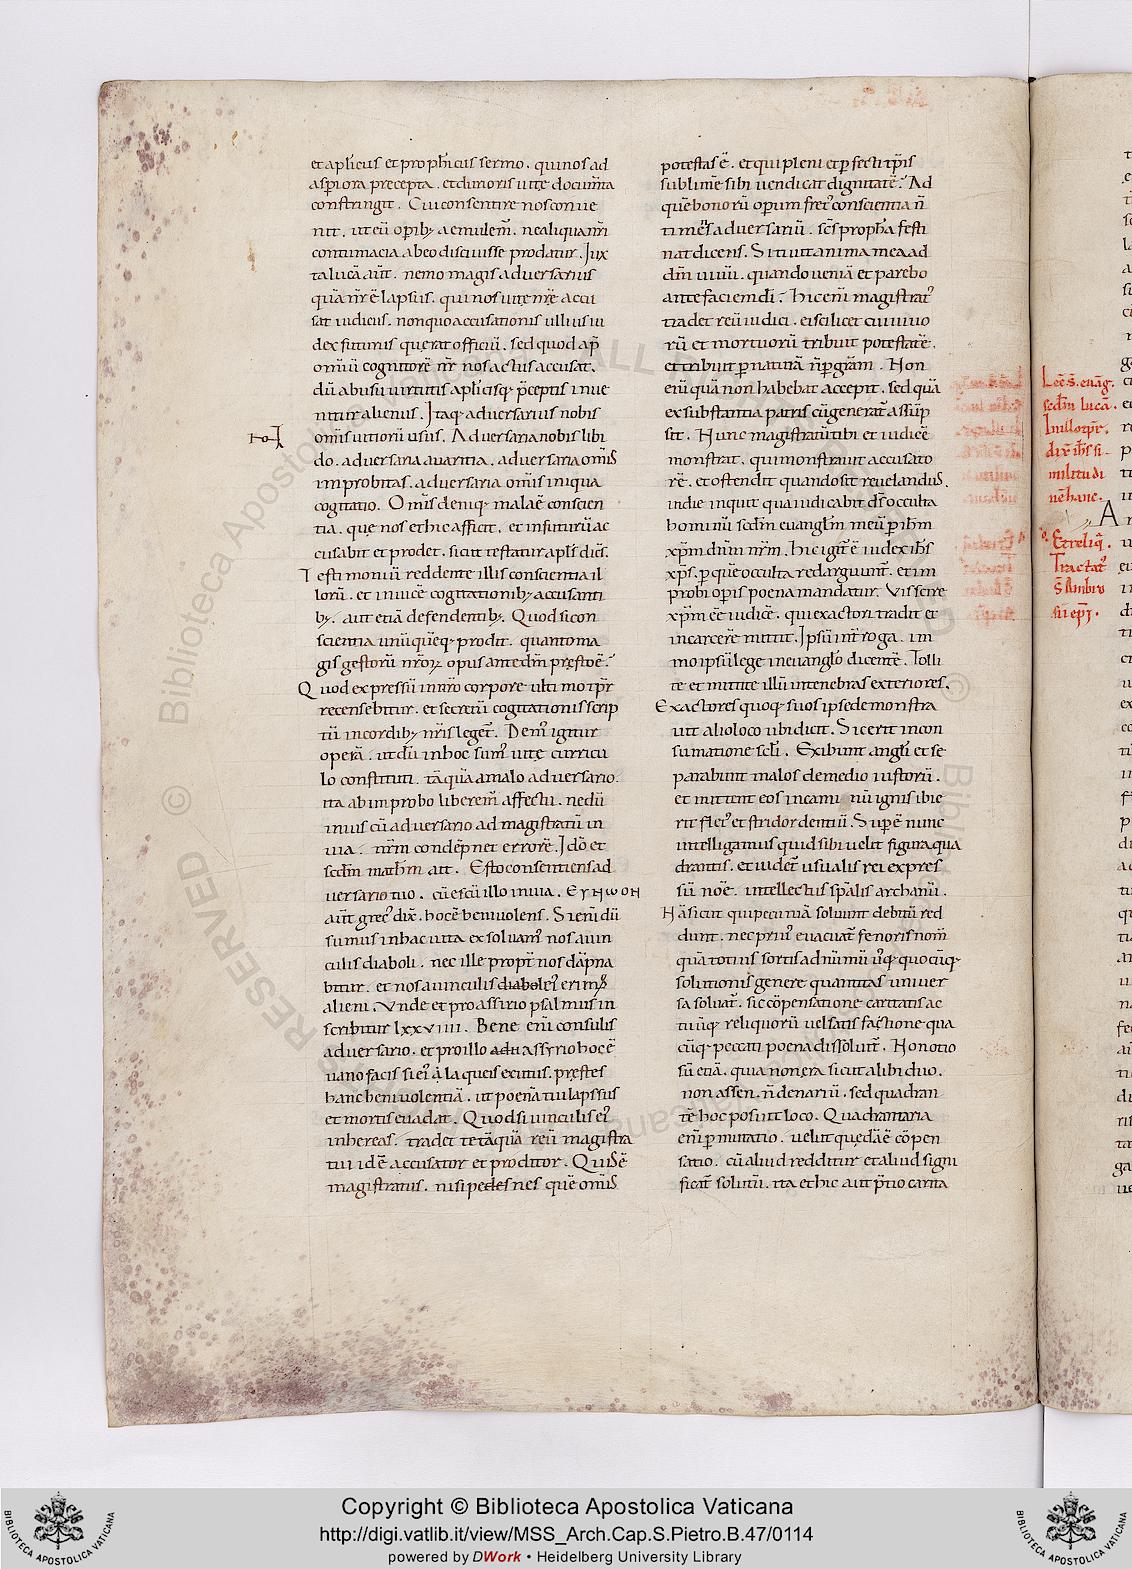 et aplicus et prophicus sermo . qui nos ad
aspiora precepta . et durioris uite docum̄ta
constringit . Cui consentire nos conue
nit . ut eū opib; aemulem̄ . ne aliquanr̄i
contumacia ab eo disciuisse prodatur . Jux
ta lucā aūt . nemo magis aduersarius
quā nr̄ ē lapsus . qui nos uite nr̄e accu
sat iudicus . non quo accusationis ullius iu
dex futurus querat officiū . sed quod ap̄
omiū cognitorē nr̄ nos actus accusat .
dū abusu uirtutis aplicisq; p̄ceptis inue
nitur alienus . Jtaq; aduersarius nobis
om̄is uitiorū usus . Aduersaria nobis libi
do . aduersaria auaritia . aduersaria om̄is
improbitas . aduersaria om̄is iniqua
cogitatio . Om̄is deniq; malae conscien
tia . que nos et hic afficit . et in futurū ac
cusabit et prodet . sicut testatur apls̄ dic̄s .
Testimoniū reddente illis conscientia il
lorū . et inuicē cogitationib; accusanti
b; . aut etiā defendentib; . Quod si con
scientia unūquēq; prodit . quantoma
gis gestorū nr̄oꝝ opus ante dm̄ presto ē .
Quod expressū in nr̄o corpore ultimo ipr̄
recensebitur . et secretū cogitationis scrip
tū in cordib; nr̄is leget̄ . Dem᾽ igitur
operā . ut dū in hoc sum᾽ uite curricu
lo constituti . tāquā a malo aduersario .
ita ab improbo liberem̄ affectu . ne dū
imus cū aduersario ad magistratū in
uia . nr̄m condēpnet errorē . Jdō et
scdm̄ math̄m ait . Esto consentiens ad
uersario tuo . cū es cū illo in uia . ΕΥΝⲰΟΝ
aūt grec᾽ dix̄ . hoc ē beniuolens . Si enī dū
sumus in hac uita exsoluam᾽ nos a uin
culis diaboli . nec ille propt̄ nos dāpna
bitur . et nos a uinculis diaboli ei᾽ erim᾽
alieni . Vnde et pro assirio psalmus in
scribitur lxxuiiii . Bene enī consulis
aduersario . et pro illo adu assyrio hoc ē
uano facis si ei᾽ a laqueis exutus . prestes
hanc beniuolentiā . ut poenā tui lapssus
et mortis euadat . Quod si uinculis ei᾽
inhereas . tradet te tāquā reū magistra
tui idē accusator et proditor . Quis ē
magistratus . nisi pedes nes quē om̄is
potestas ē . et qui pleni et pfecti tp̄is
sublimē sibi uendicat dignitatē . Ad
quē bonorū opum fret᾽ conscientia n̄
timēs aduersariū . sc̄s propha festi
nat dicens . Sitiuit anima mea ad
dm̄ uiuū . quando ueniā et parebo
ante faciem dī . hic enī magistrat᾽
tradet reū iudici . ei scilicet cui uiuo
rū et mortuorū tribuit potestatē .
et tribuit p naturā n̄ p grām . Non
enī quā non habebat accepit . sed quā
ex substantia patris cū generat̄ assūp
sit . Hunc magistratū tibi et iudicē
monstrat . qui monstrauit accusato
rē . et ostendit quando sit reuelandus .
indie inquit qua iudicabit ds̄ occulta
hominū scdm̄ euanglm̄ meū p ihm̄
xp̄m dnm̄ nr̄m . hic igit᾽ ē iudex ihs̄
xp̄s . p quē occulta redarguunt̄ . et im
probi opis poena mandatur . Vis scire
xp̄m eē iudicē . qui exactori tradit et
in carcerē mittit . Jpsū int̄roga . im
mo ipsū lege in euanglo dicentē . Tolli
te et mittite illū in tenebras exteriores .
Exactores quoq; suos ipse demonstra
uit alio loco ubi dicit . Sic erit in con
sumatione scl̄i . Exibunt angl̄i et se
parabunt malos de medio iustorū .
et mittent eos in camī nū ignis ibi e
rit flet᾽ et stridor dentiū . Supē nunc
intelligamus quid sibi uelit figura qua
drantis . et uidet̄ usualis rei expres
sū noē . intellectus sp̄alis archanū .
Nā sicut qui pecuniā soluunt debitū red
dunt . nec pri᾽ euacuat̄ fenoris nom̄
quā totius sortis ad nūmū usq; quocūq;
solutionis genere quantitas uniuer
sa soluat̄ . sic cōpensatione caritatis ac
tuūq; reliquorū uel satisfactione qua
cūq; peccati poena dissoluit̄ . Non otio
sū etiā . quia non era sicut alibi duo .
non assen . n̄ denariū . sed quadran
tē hoc posuit loco . Quadrantaria
enī p mutatio . uelut quedā ē cōpen
satio . cū aliud redditur et aliud signi
ficat̄ solutū . ita et hic aut p̄tio carita
Lec̄ s̄. euāg.
secdm̄ lucā .
In illo tp̄r .
dix̄ ihs̄ si
militudi
nē hanc .
Et reliq̄ .
Tractat᾽
s̄ Ambro
sii ep̄i .
© Biblioteca Apostolica Vaticana
ALL RIGHTS RESERVED
Copyright © Biblioteca Apostolica Vaticana
http://digi.vatlib.it/view/MSS_Arch.Cap.S.Pietro.B.47/0114
powered by DWork • Heidelberg University Library
BIBLIOTECA APOSTOLICA VATICANA
BIBLIOTECA APOSTOLICA VATICANA